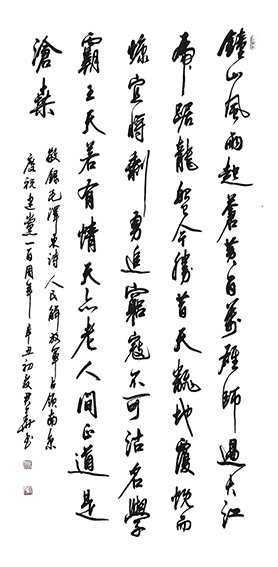 鐘山風雨起蒼黃百萬雄師過大江
虎踞龍盤今勝昔天翻地覆慨而
慷宜將剩勇追窮寇不可沽名學
霸王天若有情天亦老人間正道是
滄桑
敬錄毛澤東詩 人民解放軍占領南京
慶祝建黨一百周年 辛丑初夏 書